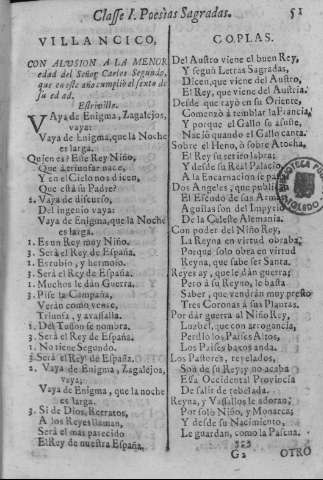 Classe I. Poesias Sagradas. 51
VILLANCICO,
CON ALVSION A LA MENOR
edad del Señor Carlos Segundo,
que en este año cumpliò el sexto de
su edad.
Estrivillo.
VAya de Enigma, Zagalejos,
vaya:
Vaya de Enigma, que la Noche
es larga.
Quien es? Este Rey Niño,
Que à triunfar nace,
Y en el Cielo nos dicen,
Que està su Padre?
2. Vaya de discurso,
Del ingenio vaya:
Vaya de Enigma, que la Noche
es larga.
1. Es un Rey muy Niño.
3. Serà el Rey de España.
1. Es rubio, y hermoso.
3. Serà el Rey de España.
1. Muchos le dàn Guerra.
3. Pise la Campaña,
Veràn como vence,
Triunfa, y avasalla.
1. Del Tuson se nombra.
3. Serà el Rey de España.
1. No tiene Segundo.
3. Serà el Rey de España.
2. Vaya de Enigma, Zagalejos,
vaya;
Vaya de Enigma, que la Noche
es larga.
3. Si de Dios, Retratos,
A los Reyes llaman,
Serà el mas parecido
El Rey de nuestra España.
COPLAS.
Del Austro viene el buen Rey,
Y segun Letras Sagradas,
Dicen, que viene del Austro,
El Rey, que viene del Austria.
Desde que rayò en su Oriente,
Comenzò à temblar la Francia,
Y porque el Gallo se asuste,
Naciò quando el Gallo canta.
Sobre el Heno, ò sobre Atocha,
El Rey su serio labra:
Y desde su Real Palacio
A la Encarnacion se pasa.
Dos Angeles, que publican
El Escudo de sus Armas,
Aguilas son del Impyrio
De la Celeste Alemania.
Con poder del Niño Rey,
La Reyna en virtud obraba,
Porque solo obra en virtud
Reyna, que sabe ser Santa.
Reyes ay, que le dàn guerra;
Pero à su Reyno, le basta
Saber, que vendràn muy presto
Tres Coronas à sus Plantas.
Por dàr guerra al Niño Rey,
Luzbel, que con arrogancia,
Perdiò los Países Altos,
Los Países baxos anda.
Los Pastores, revelados,
Son de su Rey; y no acaba
Essa Occidental Provincia
De salir de rebelada.
Reyna, y Vasallos le adoran,
Por solo Niño, y Monarca;
Y desde su Nacimiento,
Le guardan, como la Pascua.
G2 OTRO